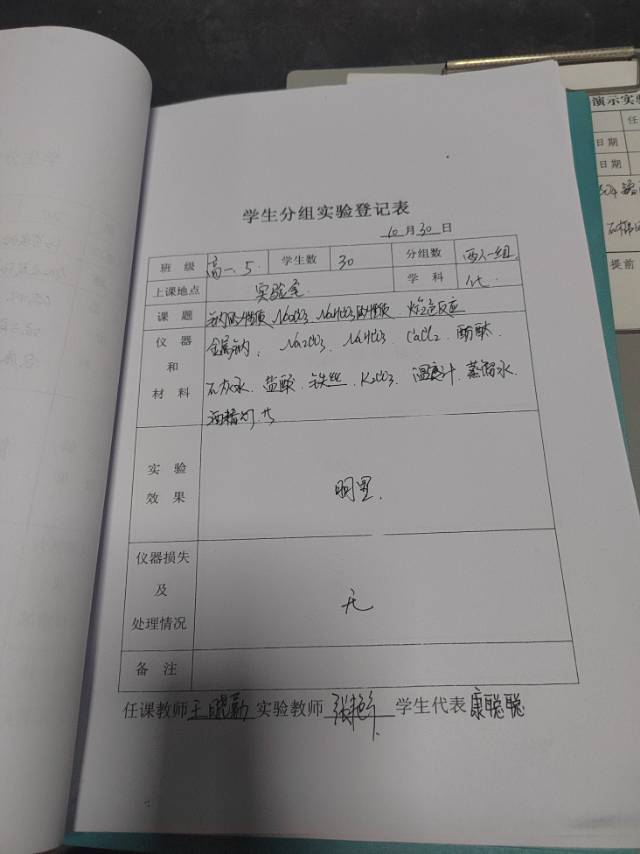 学生分组实验登记表
10月30日
班级 高一.5 学生数 30 分组数 两人一组
上课地点 实验室 学科 化
课题 钠的性质、Na2CO3、NaHCO3的性质 焰色反应
仪器 金属钠、Na2CO3、NaHCO3、CaCl2、酚酞
和
材料 石灰水、盐酸、铁丝、K2CO3、温度计、蒸馏水
酒精灯
实验
效果
明显.
仪器损失
及
处理情况
无
备注
任课教师 王晓勤 实验教师 张 学生代表 康聪聪
演示实验
任
日期
日期
提前